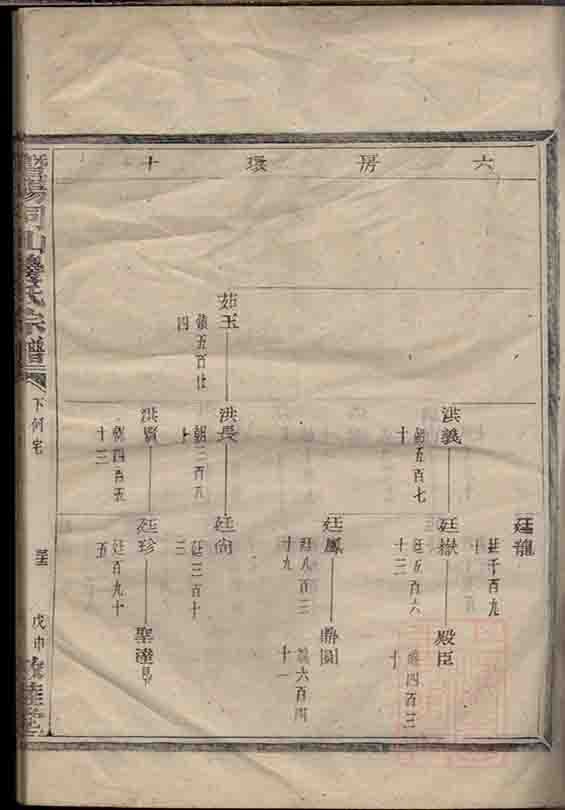 六房環十
廷龍
廷千百九十
洪義
朝五百七十
廷嶽
廷五百六十三
殿臣
四百三十
廷鳳
廷八百三十九
六百四十一
茹玉
五百廿四
洪長
朝三百五十
廷尚
廷三百十三
洪賢
朝四百五十三
廷珍
廷百九十五
聖
暨陽同山邊氏宗譜
下何宅
戊申